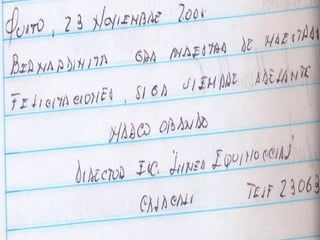 QUITO, 23 NOVIEMBRE 200
BERNARDINITA GRA MAESTRA DE MAESTRAS
FELICITACIONES, SIGA SIEMPRE ADELANTE
MARCO OBANDO
DIRECTOR ESC. "LINEA EQUINOCCIAL"
CALACALI TELF 23063